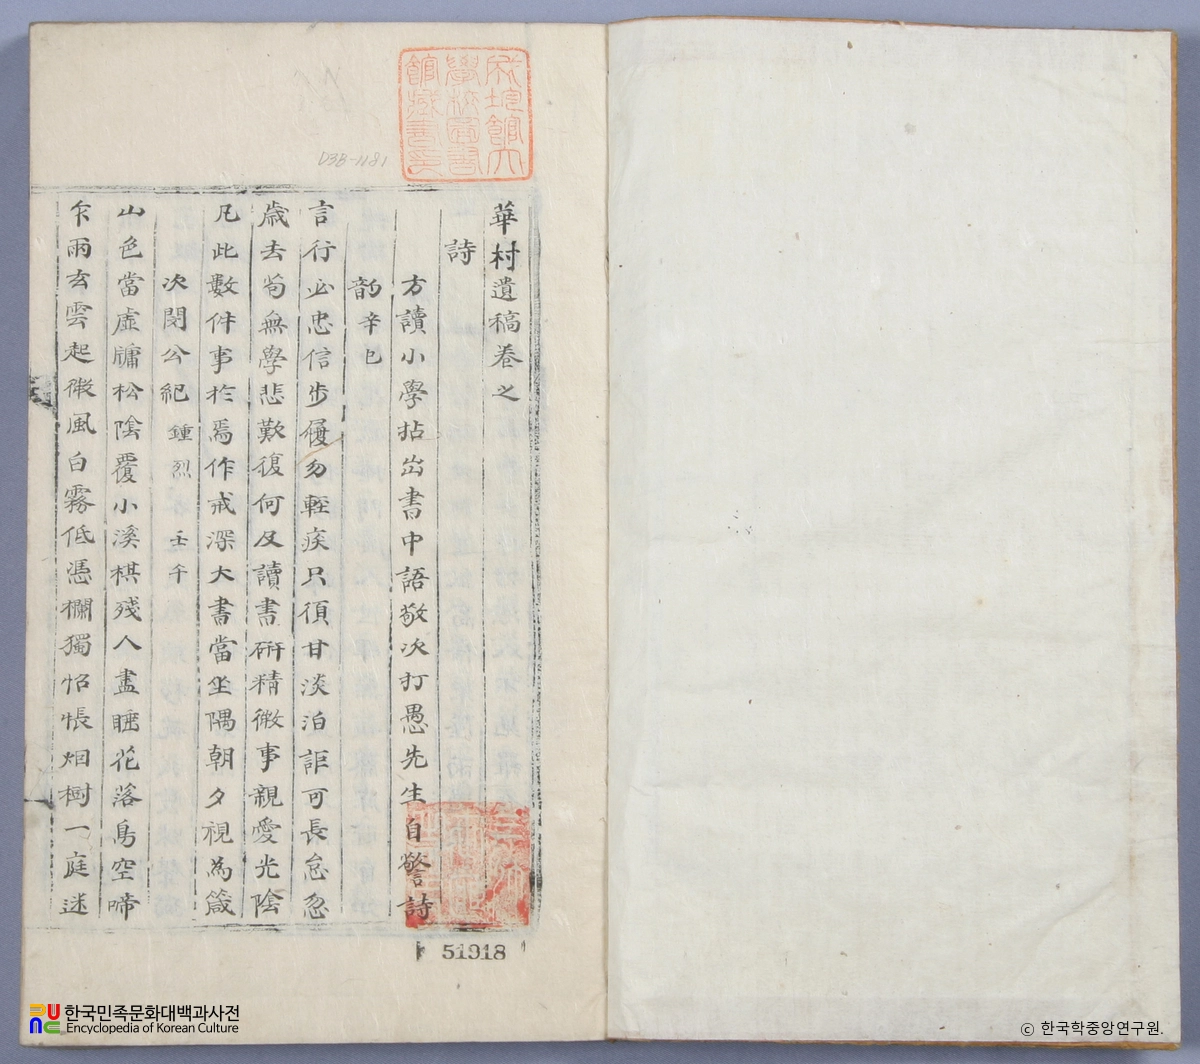 華村遺稿卷之
詩
方讀小學拈出書中語敬次打愚先生自警詩
韵 辛巳
言行必忠信步履勿輕疾只須甘淡泊詎可長怠忽
歲去苟無學悲歎復何及讀書硏精微事親愛光陰
凡此數件事於焉作戒深大書當坐隅朝夕視為箴
次閔公紀 鍾烈 壬午
山色當虛牖松陰覆小溪棋殘人盡睡花落鳥空啼
乍雨玄雲起微風白霧低憑欄獨怊悵烟樹一庭迷
D3B-1181
51918
한국민족문화대백과사전
Encyclopedia of Korean Culture
© 한국학중앙연구원.